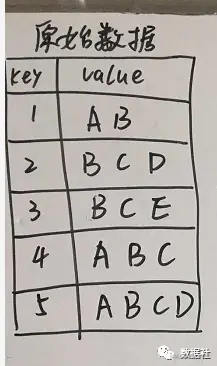 原始数据
key value
1 A B
2 B C D
3 B C E
4 A B C
5 A B C D
数据社